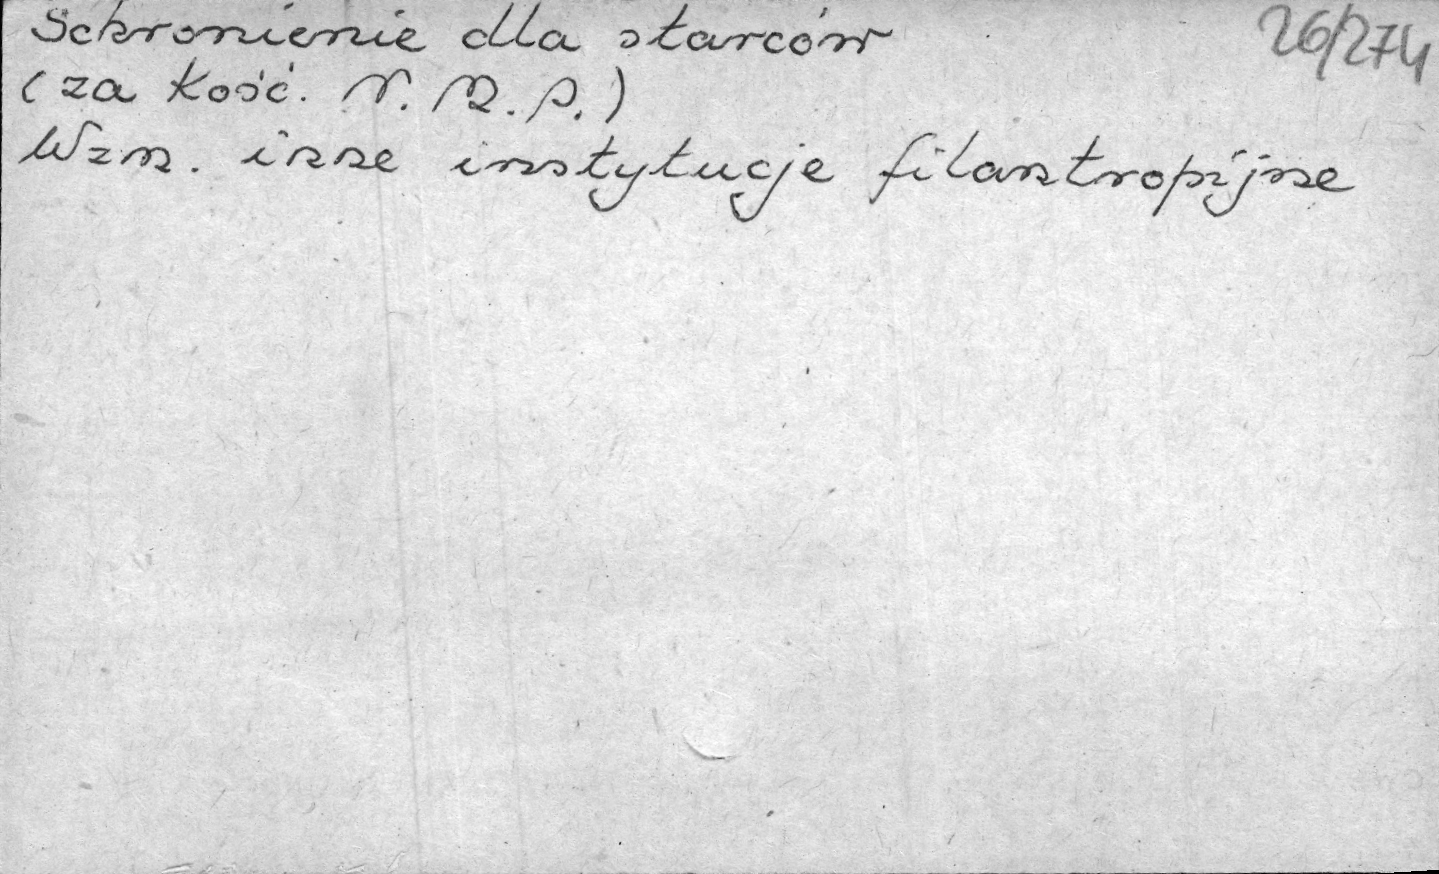 Schronienie dla starców
26/274
(za kość. N. M. P.)
Wzm. inne instytucje filantropijne